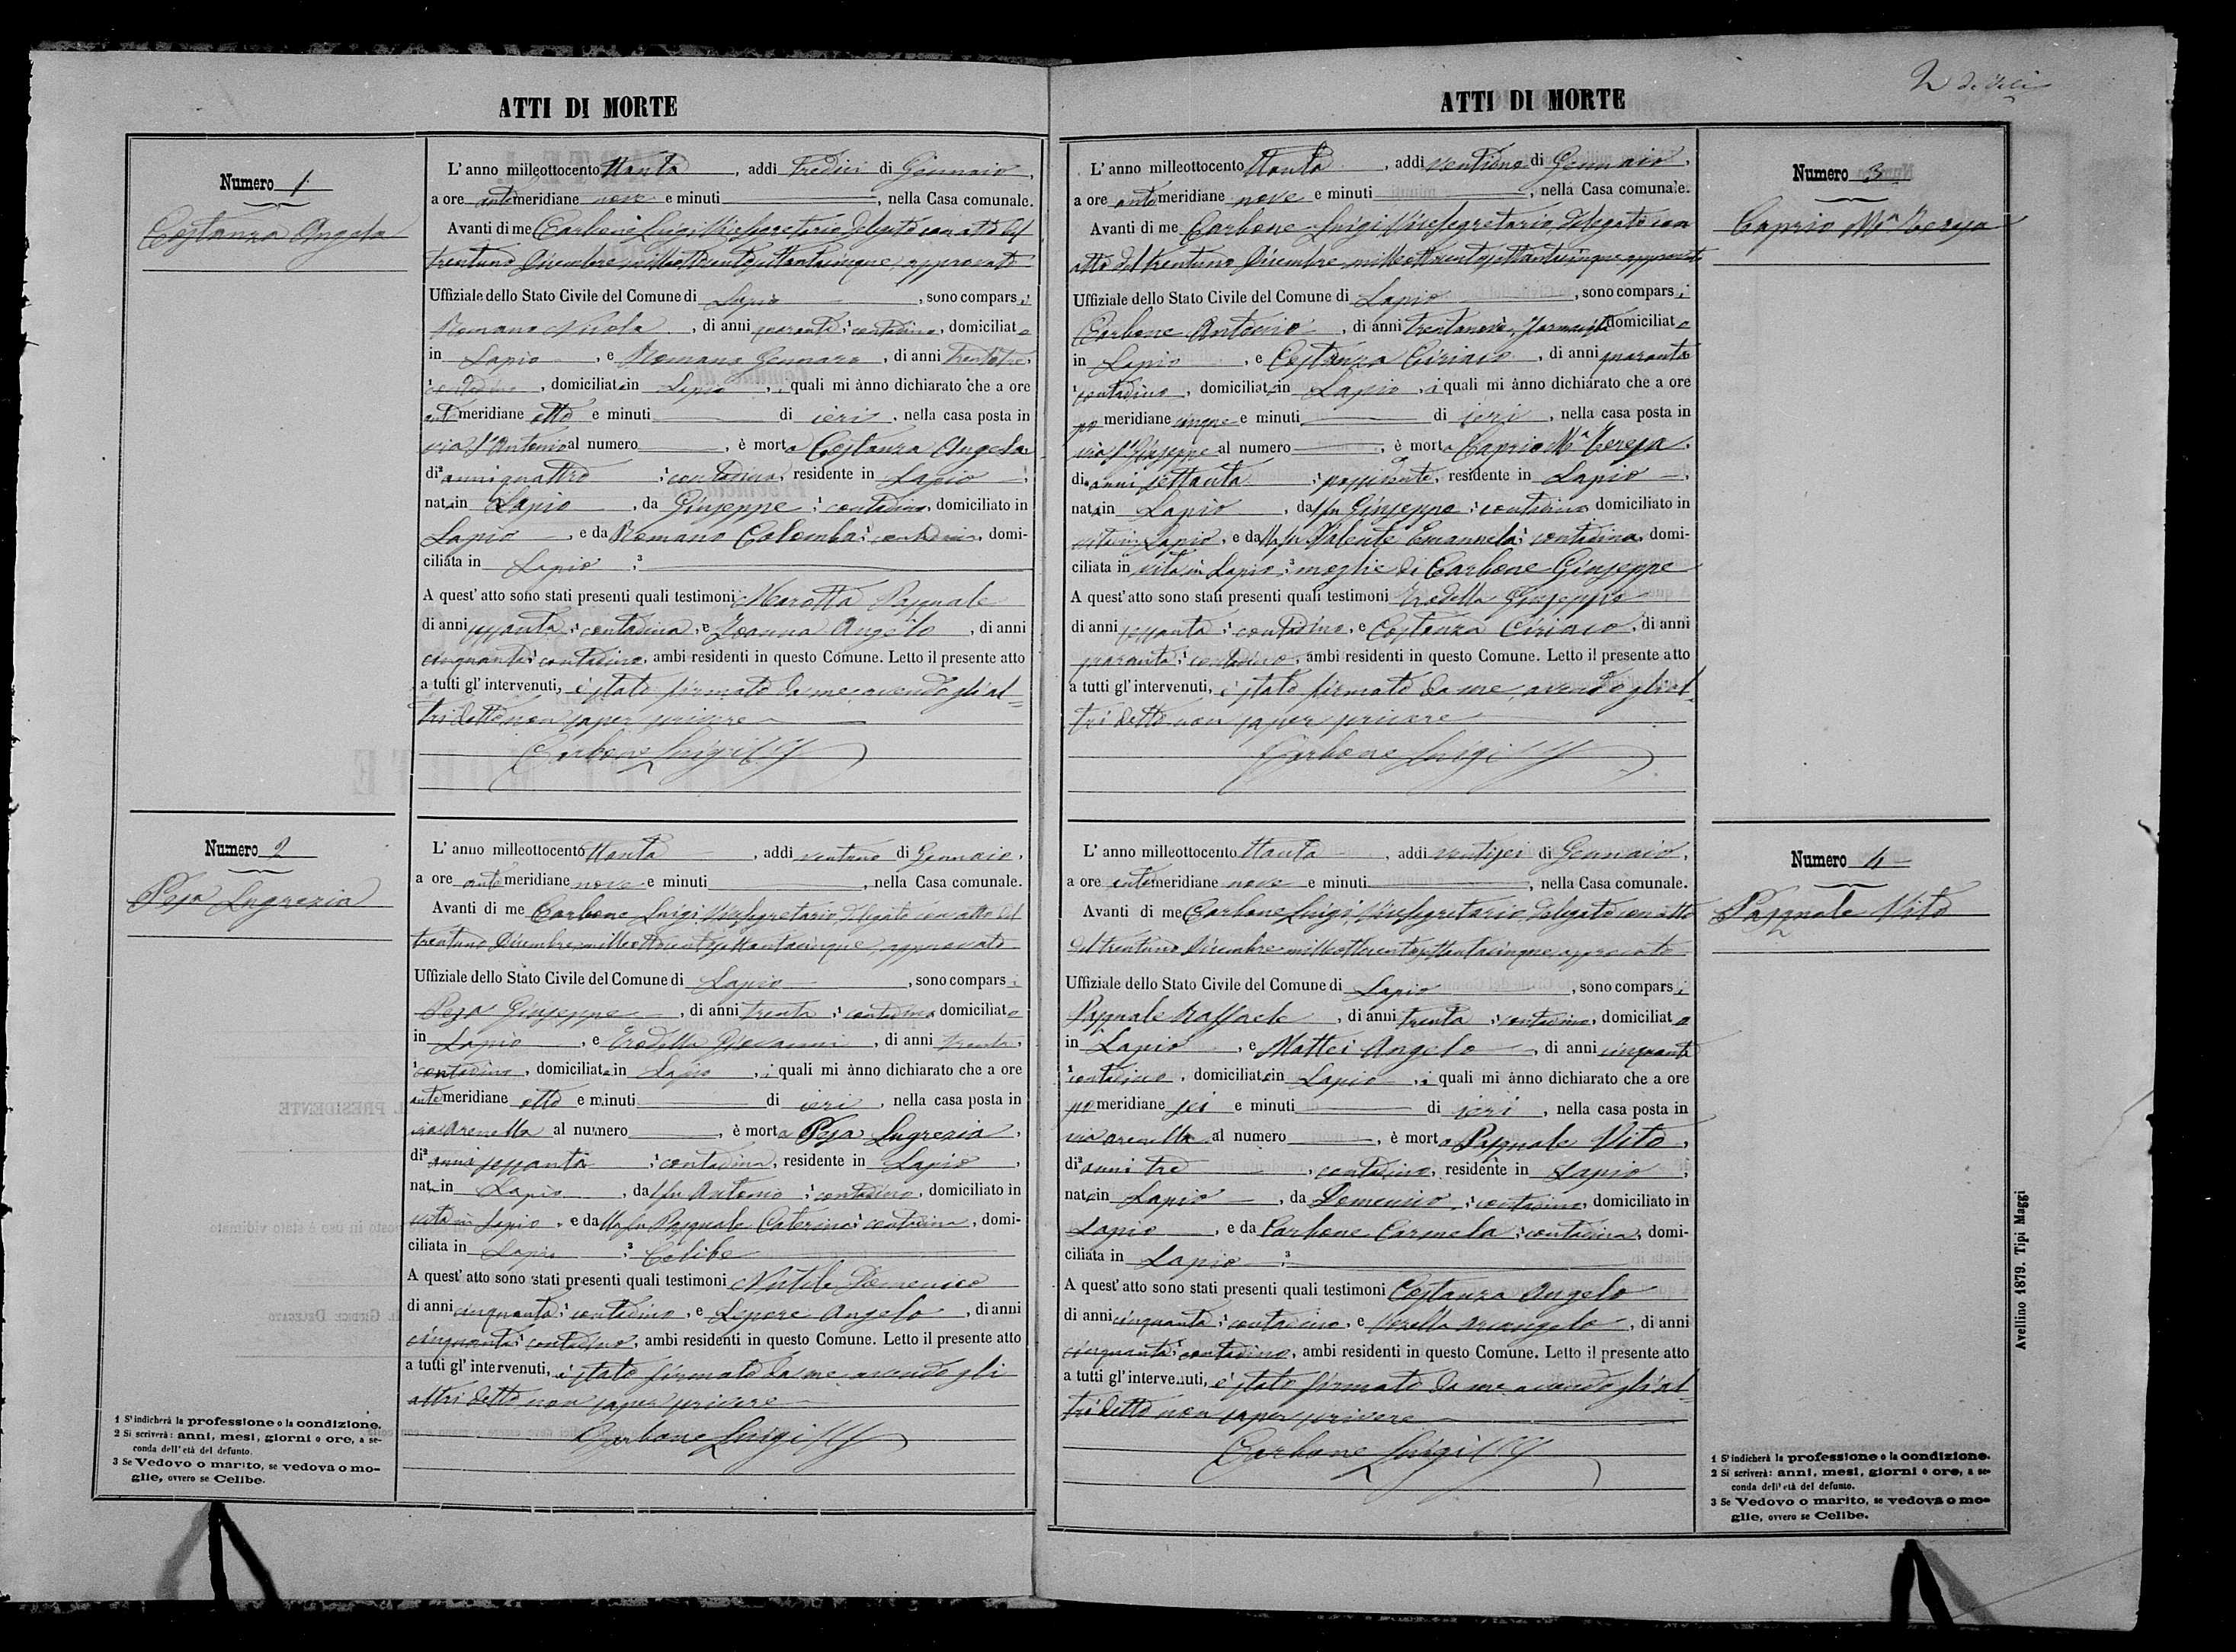 ATTI DI MORTE
Numero 1
Costanza Angela
L'anno milleottocento ttanta, addi tredici di Gennaio,
a ore antemeridiane nove e minuti, nella Casa comunale.
Avanti di me Carbone Luigi Vicesegretario delegato con atto del
trentuno Dicembre milleottocentosettantacinque, approvato
Uffiziale dello Stato Civile del Comune di Lapio, sono comparsi
Romano Nicola, di anni quaranta; contadino, domiciliato
in Lapio, e Romano Gennaro, di anni trentatre,
contadino, domiciliato in Lapio, i quali mi ànno dichiarato che a ore
antmeridiane otto e minuti di ieri, nella casa posta in
via S. Antonio al numero, è morta Costanza Angela,
di anni quattro; contadina, residente in Lapio;
nata in Lapio, da Giuseppe; contadino, domiciliato in
Lapio, e da Romano Colomba; contadina, domi-
ciliata in Lapio;
A quest'atto sono stati presenti quali testimoni Marotta Pasquale
di anni sessanta; contadino, e Ioanna Angelo, di anni
cinquanta; contadino, ambi residenti in questo Comune. Letto il presente atto
a tutti gl'intervenuti, è stato firmato da me avendo gli al-
tri detto non saper scrivere
Carbone Luigi
Numero 2
Pesa Lugrezia
L'anno milleottocento ttanta, addi ventuno di Gennaio,
a ore antemeridiane nove e minuti, nella Casa comunale.
Avanti di me Carbone Luigi Vicesegretario, delegato con atto del
trentuno Dicembre milleottocentosettantacinque, approvato
Uffiziale dello Stato Civile del Comune di Lapio, sono comparsi
Pesa Giuseppe, di anni trenta; contadino domiciliato
in Lapio, e Trodella Giovanni, di anni trenta,
contadino, domiciliato in Lapio, i quali mi ànno dichiarato che a ore
antemeridiane otto e minuti di ieri, nella casa posta in
via Arenella al numero, è morta Pesa Lugrezia,
di anni sessanta; contadina, residente in Lapio,
nata in Lapio, dal fu Antonio; contadino, domiciliato in
vita in Lapio, e dalla fu Pasquale Caterina; contadina, domi-
ciliata in Lapio; Celibe
A quest'atto sono stati presenti quali testimoni Domenico
di anni cinquanta; contadino, e Lepore Angelo, di anni
cinquanta; contadino, ambi residenti in questo Comune. Letto il presente atto
a tutti gl'intervenuti, è stato firmato da me avendo gli
altri detto non saper scrivere
Carbone Luigi
1 S'indicherà la professione o la condizione.
2 Si scriverà: anni, mesi, giorni o ore, a se-
conda dell'età del defunto.
3 Se Vedovo o marito, se vedova o mo-
glie, ovvero se Celibe.
2
ATTI DI MORTE
Numero 3
Caprio Ma Teresa
L'anno milleottocento ttanta, addi ventidue di Gennaio,
a ore antemeridiane nove e minuti, nella Casa comunale.
Avanti di me Carbone Luigi Vicesegretario, delegato con
atto del trentuno Dicembre milleottocentosettantacinque approvato
Uffiziale dello Stato Civile del Comune di Lapio, sono comparsi
Carbone Antonio, di anni trentanove, domiciliato
in Lapio, e Costanza Ciriaco, di anni quaranta
contadino, domiciliato in Lapio, i quali mi ànno dichiarato che a ore
pomeridiane cinque e minuti di ieri, nella casa posta in
via S. Giuseppe al numero, è morta Caprio Ma Teresa,
di anni settanta; possidente, residente in Lapio,
nata in Lapio, dal fu Giuseppe; contadino domiciliato in
vita in Lapio, e dalla fu Valente Emanuela; contadina, domi-
ciliata in vita in Lapio; moglie di Carbone Giuseppe
A quest'atto sono stati presenti quali testimoni Trodella Giuseppe
di anni sessanta; contadino, e Costanza Ciriaco, di anni
quaranta; contadino, ambi residenti in questo Comune. Letto il presente atto
a tutti gl'intervenuti, è stato firmato da me avendo gli al-
tri detto non saper scrivere
Carbone Luigi
Numero 4
Pasquale Vito
L'anno milleottocento ttanta, addi ventisei di Gennaio,
a ore antemeridiane nove e minuti, nella Casa comunale.
Avanti di me Carbone Luigi, Vicesegretario delegato con atto
del trentuno Dicembre milleottocentosettantacinque, approvato
Uffiziale dello Stato Civile del Comune di Lapio, sono comparsi
Pasquale Raffaele, di anni trenta; contadino, domiciliato
in Lapio, e Mattei Angelo, di anni cinquanta
contadino, domiciliato in Lapio, i quali mi ànno dichiarato che a ore
pomeridiane sei e minuti di ieri, nella casa posta in
via arenella al numero, è morto Pasquale Vito,
di anni tre, contadino, residente in Lapio,
nato in Lapio, da Domenico; contadino, domiciliato in
Lapio, e da Carbone Carmela; contadina, domi-
ciliata in Lapio;
A quest'atto sono stati presenti quali testimoni Costanza Angelo
di anni cinquanta; contadino, e Arcangelo, di anni
cinquanta; contadino, ambi residenti in questo Comune. Letto il presente atto
a tutti gl'intervenuti, è stato firmato da me avendo gli al-
tri detto non saper scrivere
Carbone Luigi
1 S'indicherà la professione o la condizione.
2 Si scriverà: anni, mesi, giorni o ore, a se-
conda dell'età del defunto.
3 Se Vedovo o marito, se vedova o mo-
glie, ovvero se Celibe.
Avellino 1879. Tipi Maggi